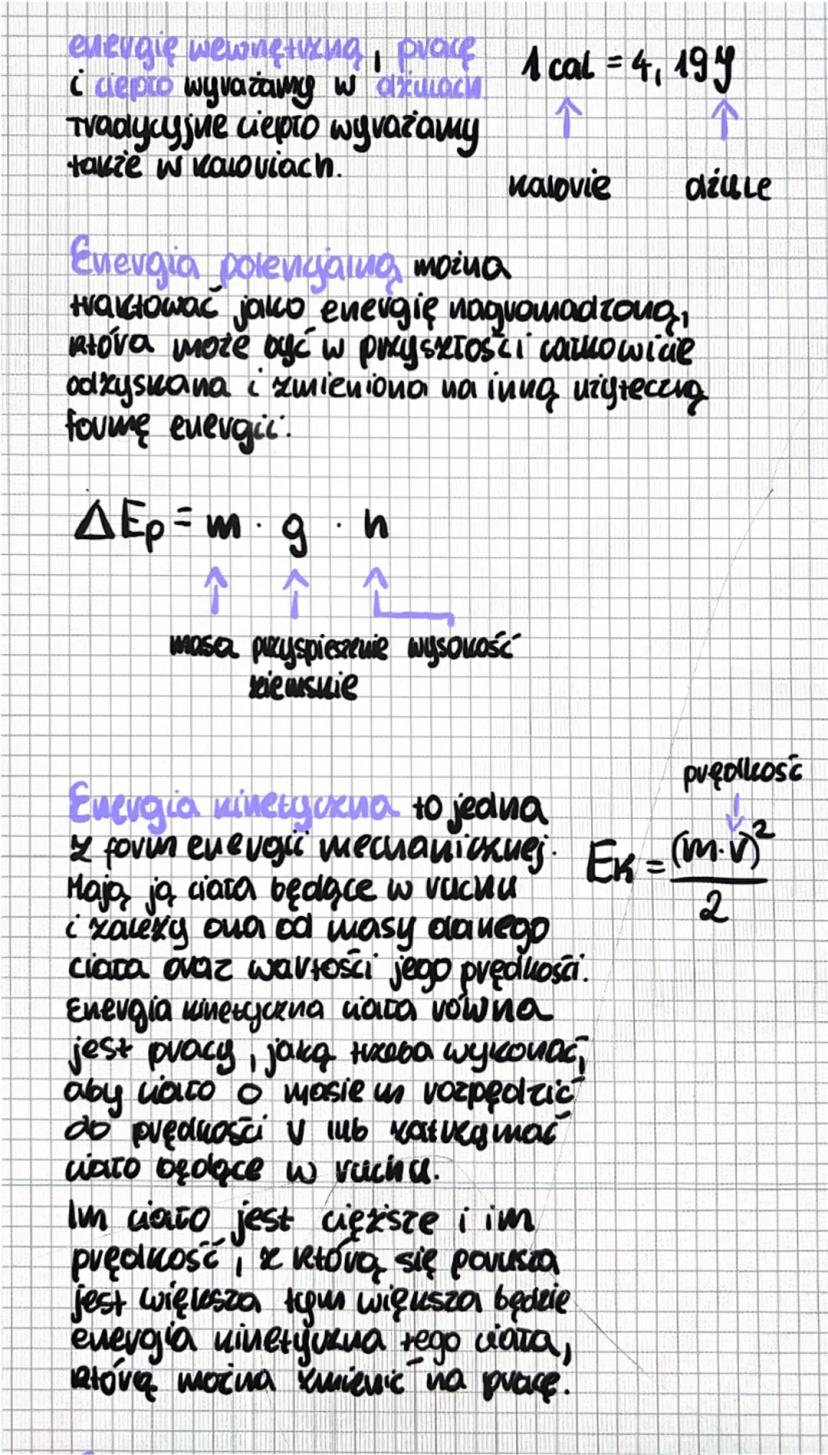 energię wewnętrzną, pracę
i ciepło wyrażamy w dżulach
Tradycyjne ciepło wyrażamy
także w kaloriach.
1 cal = 4,19 J
kalorie dżule
Energia potencjalną można
traktować jako energię nagromadzoną,
która może być w przyszłości całkowicie
odzyskana i zmieniona na inną użyteczną
formę energii.
ΔEp = m · g · h
masa przyspieszenie wysokość
ziemskie
Energia kinetyczna to jedna
z form energii mechanicznej.
Mają ją ciała będące w ruchu
i zależy ona od masy danego
ciała oraz wartości jego prędkości.
Energia kinetyczna ciała równa
jest pracy, jaką trzeba wykonać,
aby ciało o masie m rozpędzić
do prędkości v lub zatrzymać
ciało będące w ruchu.
prędkość
Ek = (m·v)²
2
Im ciało jest cięższe i im
prędkość, z którą się porusza
jest większa tym większa będzie
energia kinetyczna tego ciała,
którą można zmienić na pracę.